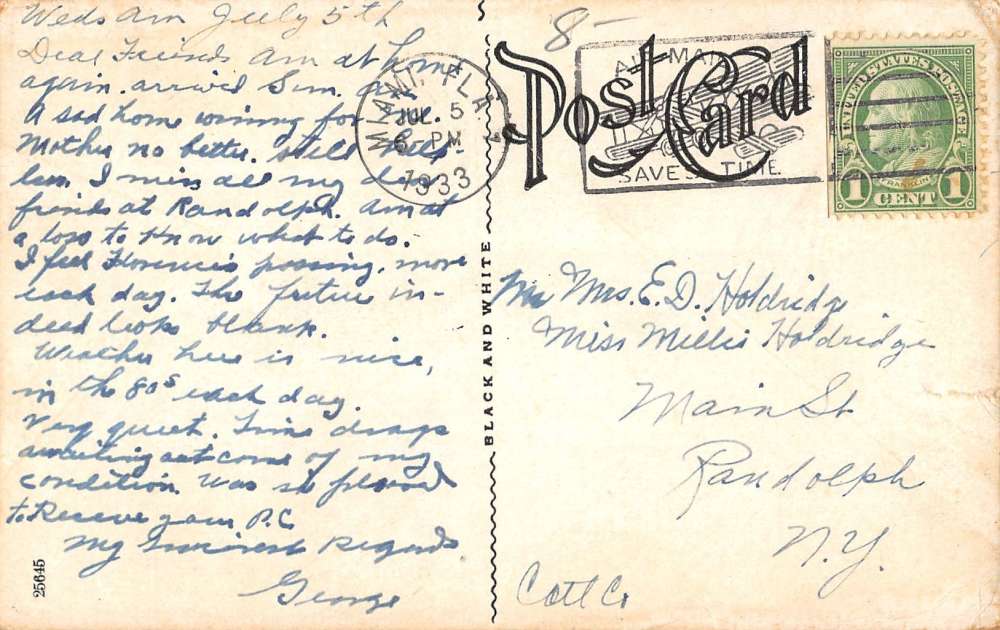 Weds Am July 5th
Dear Friends Am at home
again. arrived Sun.
A sad home coming for me.
Mother no better. still help-
less. I miss all my dear
friends at Randolph. am at
a loss to know what to do.
I feel Florence's passing, more
each day. The future in-
deed looks blank.
Weather here is nice,
in the 80s each day.
Very quiet. Time drags
awaiting outcome of my
condition. Was so pleased
to Receive your P.C
My Sincerest Regards
George
25645
BLACK AND WHITE
8-
Post Card
MIAMI, FLA.
JUL 5
6 PM
1933
AIR MAIL
SAVES TIME
UNITED STATES POSTAGE
FRANKLIN
1 CENT 1
Mr Mrs. E. D. Holdridge
Miss Millie Holdridge
Main St
Randolph
N.Y.
Catt Co